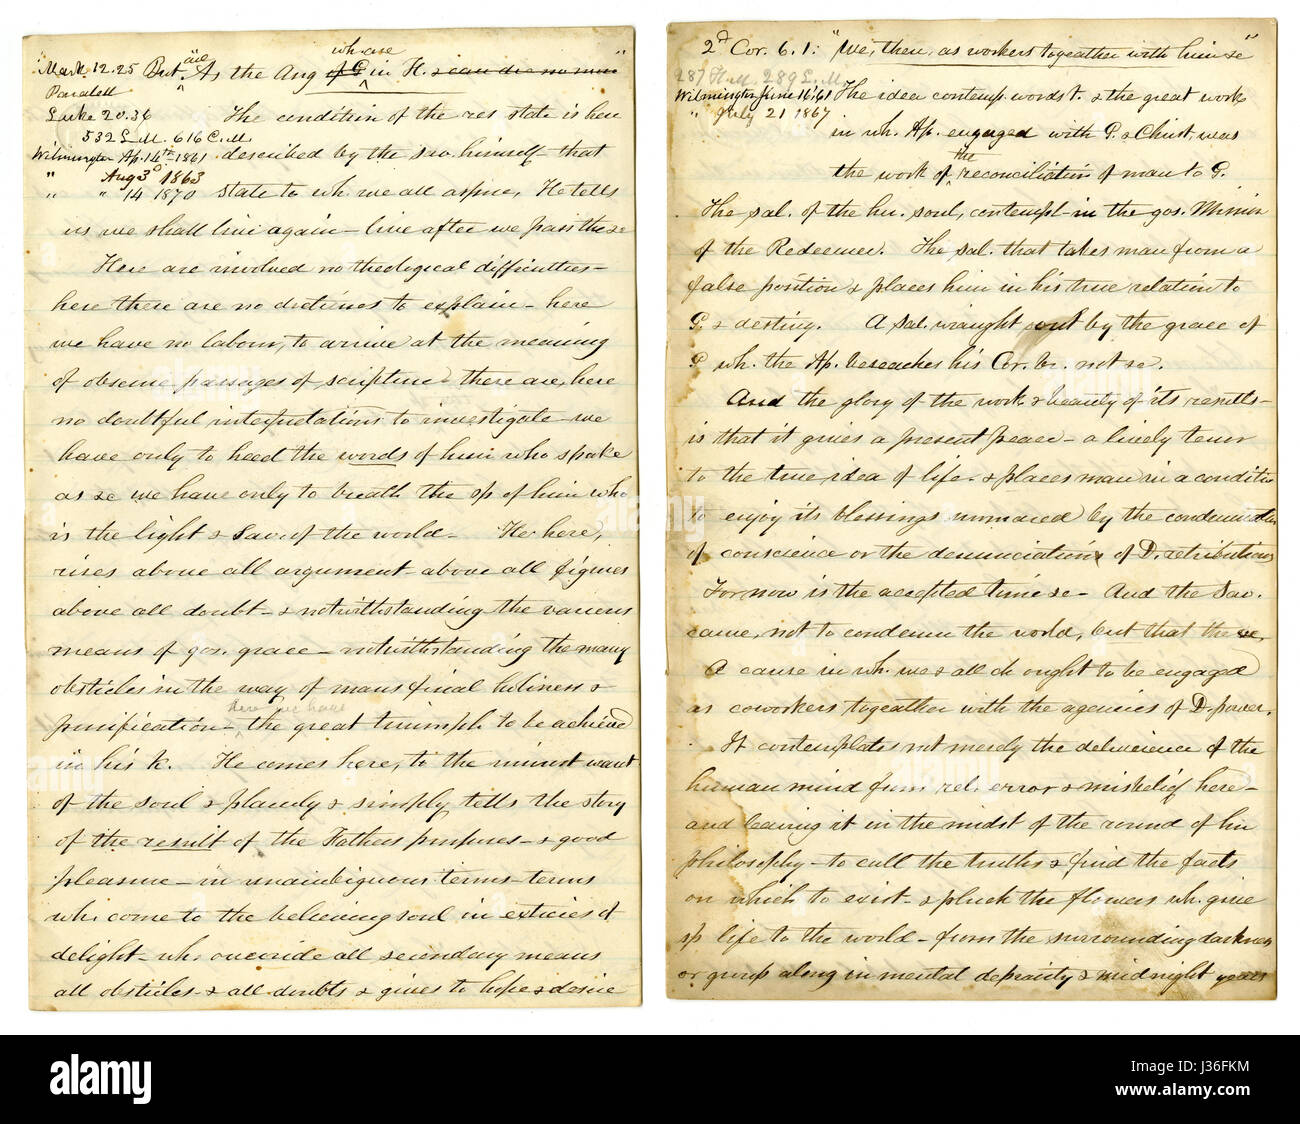 wh. are
"Mark 12.25 But are As the Ang of G in H. & can die no more"
Parallell
Luke 20.36 The condition of the res. state is here
532 L.M. 616 C.M.
Wilmington Ap. 14th 1861 described by the Sav. himself - that
" Aug 3d 1863
" " 14 1870 state to wh. we all aspire, He tells
us we shall live again - live after we pass the &c
Here are involved no theological difficulties -
here there are no doctrines to explain - here
we have no labour, to arrive at the meaning
of obscure passages of scripture - there are, here
no doubtful interpretations to investigate - we
have only to heed the words of him who spake
as &c we have only to breath the sp of him who
is the light & Sav. of the world - He here,
rises above all argument - above all figures
above all doubt - & notwithstanding the various
means of gos. grace - notwithstanding the many
obsticles in the way of mans final holiness &
here we have
purification - the great triumph to be achieved
in his k. He comes here, to the inmost want
of the soul & plainly & simply tells the story
of the result of the Fathers purposes - & good
pleasure - in unambiguous terms - terms
wh. come to the believing soul in exticies of
delight - wh. override all secondary means
all obsticles - & all doubts & gives to hope & desire
2d Cor. 6. 1: "We, then, as workers togeather with him &c"
287 H.M. 289 L.M.
Wilmington June 16 '61 The idea contemp. words t. & the great work
" July 21 1867
in wh. Ap. engaged with G. & Christ, was
the
the work of reconciliation of man to G.
The sal. of the hu. soul, contempt in the gos. Minis
of the Redeemer. The sal. that takes man from a
false position & places him in his true relation to
G. & destiny. A sal. wraught out by the grace of
G wh. the Ap. beseaches his Cor. br. not &c.
And the glory of the work & beauty of its results -
is that it gives a present peace - a lively tenor
to the true idea of life - & places man in a conditin
to enjoy its blessings unmared by the condemnation
of conscience or the denunciations of D. retributions
For now is the accepted time &c - And the Sav.
came, not to condemn the world, but that the &c.
A cause in wh. we & all ch ought to be engaged
as coworkers togeather with the agencies of D. power.
It contemplates not merely the deliverence of the
human mind from rel. error & misbelief here -
and leaving it in the midst of the round of hu
philosophy - to cull the truths & find the facts
on which to exist - & pluck the flowers wh. give
sp life to the world - from the surrounding darkness
or grasp along in mental depravity & midnight years
alamy
a
Image ID: J36FKM
www.alamy.com